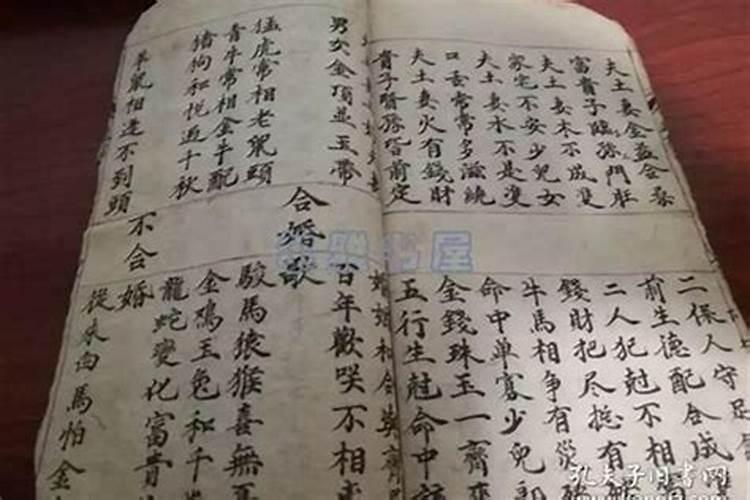 夫土妻金益合
富貴子臨孫門旺
夫土妻木不成雙
家宅不安少兒女
夫土妻水不是雙
口舌常常多滋繞
夫土妻火有錢財
貴子賢孫皆前定
二保人守足
前生德配合成
二人犯尅不相
錢財把尽有
牛馬相争有災
命中单寡少兒郎
金錢珠玉一齊來
五行生尅命中該
婚姻和合莫
男女金頂並玉帶
合婚歌
百年歡咲不相
猛虎常相老鼠頭
駿馬猿猴喜無
青牛常相金牛配
金鸡玉兔和千
猪狗和悦過千秋
龍蛇變化富貴
不合婚
羊鼠相逢不到頭
從來白馬怕金
书屋
孔夫子旧書网